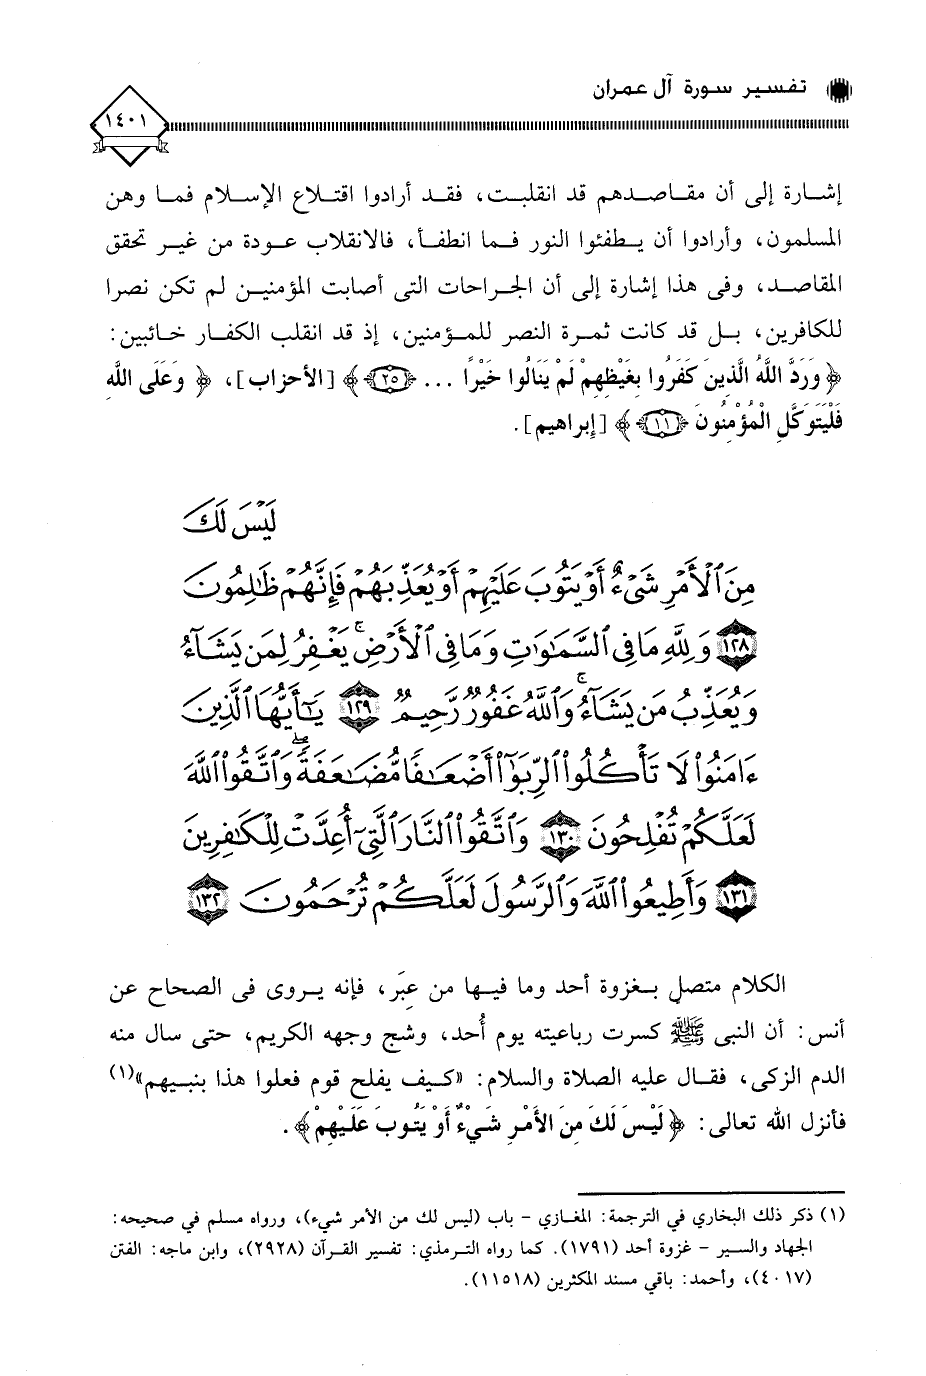 تفسير سورة آل عمران
١٤٠١
إشارة إلى أن مقاصدهم قد انقلبت، فقد أرادوا اقتلاع الإسلام فما وهن
المسلمون، وأرادوا أن يطفئوا النور فما انطفأ، فالانقلاب عودة من غير تحقق
المقاصد، وفى هذا إشارة إلى أن الجراحات التى أصابت المؤمنين لم تكن نصرا
للكافرين، بل قد كانت ثمرة النصر للمؤمنين، إذ قد انقلب الكفار خائبين:
﴿ وَرَدَّ اللَّهُ الَّذِينَ كَفَرُوا بِغَيْظِهِمْ لَمْ يَنَالُوا خَيْرًا ... ﴿٢٥﴾ ﴾ [الأحزاب]، ﴿ وَعَلَى اللَّهِ
فَلْيَتَوَكَّلِ الْمُؤْمِنُونَ ﴿١١﴾ ﴾ [إبراهيم].
لَيْسَ لَكَ
مِنَ ٱلْأَمْرِ شَىْءٌ أَوْ يَتُوبَ عَلَيْهِمْ أَوْ يُعَذِّبَهُمْ فَإِنَّهُمْ ظَٰلِمُونَ
﴿١٢٨﴾ وَلِلَّهِ مَا فِى ٱلسَّمَٰوَٰتِ وَمَا فِى ٱلْأَرْضِ ۚ يَغْفِرُ لِمَن يَشَآءُ
وَيُعَذِّبُ مَن يَشَآءُ ۚ وَٱللَّهُ غَفُورٌ رَّحِيمٌ ﴿١٢٩﴾ يَٰٓأَيُّهَا ٱلَّذِينَ
ءَامَنُوا۟ لَا تَأْكُلُوا۟ ٱلرِّبَوٰٓا۟ أَضْعَٰفًا مُّضَٰعَفَةً ۖ وَٱتَّقُوا۟ ٱللَّهَ
لَعَلَّكُمْ تُفْلِحُونَ ﴿١٣٠﴾ وَٱتَّقُوا۟ ٱلنَّارَ ٱلَّتِىٓ أُعِدَّتْ لِلْكَٰفِرِينَ
﴿١٣١﴾ وَأَطِيعُوا۟ ٱللَّهَ وَٱلرَّسُولَ لَعَلَّكُمْ تُرْحَمُونَ ﴿١٣٢﴾
الكلام متصل بغزوة أحد وما فيها من عِبَر، فإنه يروى فى الصحاح عن
أنس: أن النبى ﷺ كسرت رباعيته يوم أُحد، وشج وجهه الكريم، حتى سال منه
الدم الزكى، فقال عليه الصلاة والسلام: «كيف يفلح قوم فعلوا هذا بنبيهم»(١)
فأنزل الله تعالى: ﴿ لَيْسَ لَكَ مِنَ الأَمْرِ شَيْءٌ أَوْ يَتُوبَ عَلَيْهِمْ ﴾.
(١) ذكر ذلك البخاري في الترجمة: المغازي - باب (ليس لك من الأمر شيء)، ورواه مسلم في صحيحه:
الجهاد والسير - غزوة أحد (١٧٩١). كما رواه الترمذي: تفسير القرآن (٢٩٢٨)، وابن ماجه: الفتن
(٤٠١٧)، وأحمد: باقي مسند المكثرين (١١٥١٨).